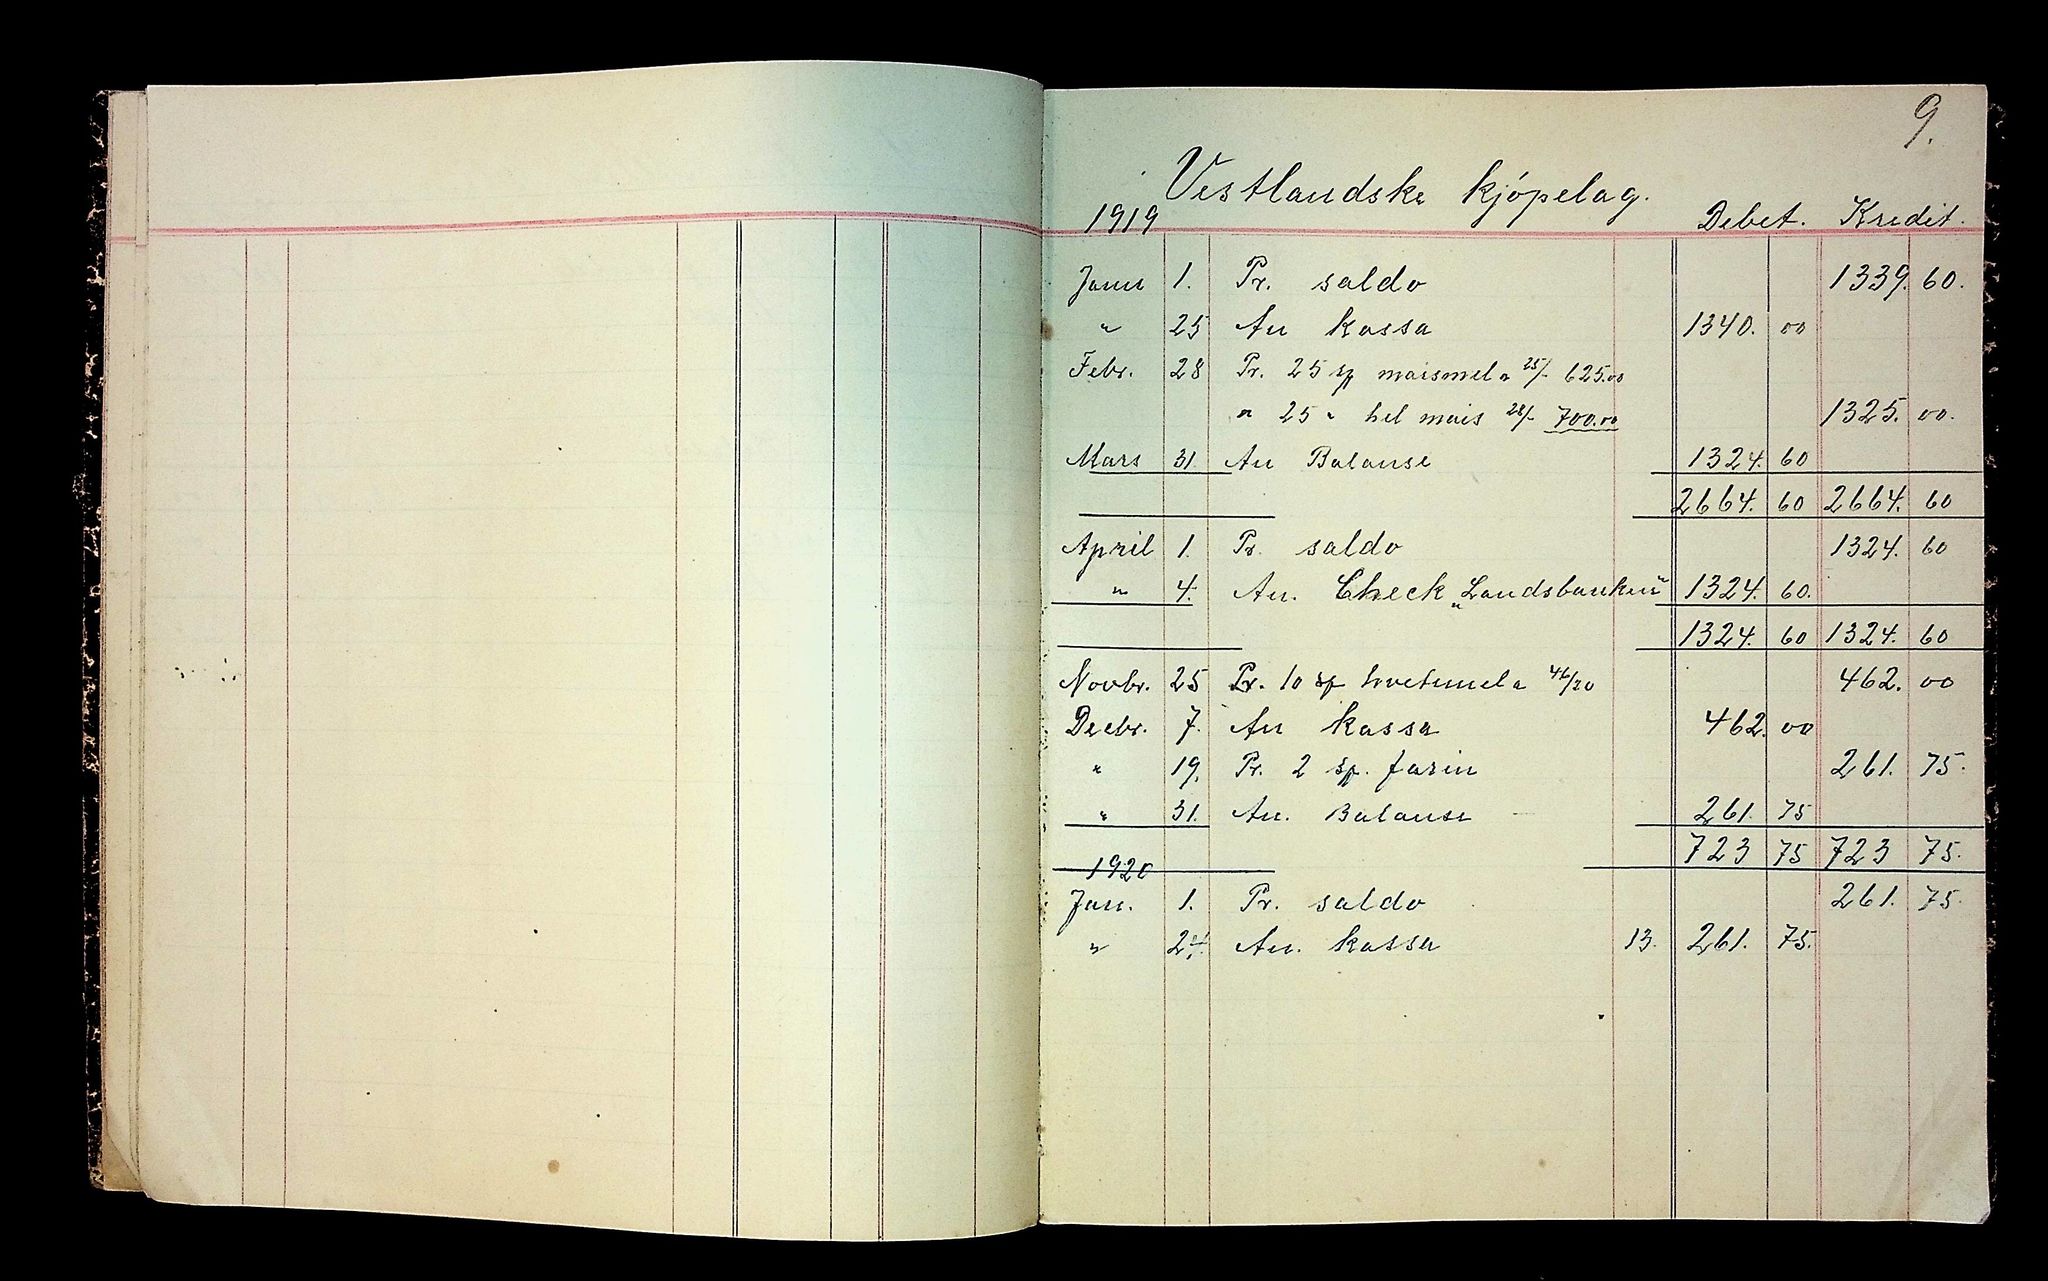 9.
Vestlandske kjópelag.
1919 Debet. Kredit.
Janu 1. Pr. saldo 1339. 60.
" 25 An kassa 1340. 00
Febr. 28 Pr. 25 sp maismel a 25/- 625.00
" 25 " hel mais 28/- 700.00 1325. 00.
Mars 31. An Balanse 1324. 60
2664. 60 2664. 60
April 1. Pr. saldo 1324. 60
" 4. An. Check „Landsbanken" 1324. 60.
1324. 60 1324. 60
Novbr. 25 Pr. 10 sp hvetemel a 46/20 462. 00
Decbr. 7. An kassa 462. 00
" 19. Pr. 2 sp. farin 261. 75.
" 31. An. Balanse 261. 75
723 75 723 75.
1920
Jan. 1. Pr. saldo 261. 75.
" 24. An. kassa 13. 261. 75.